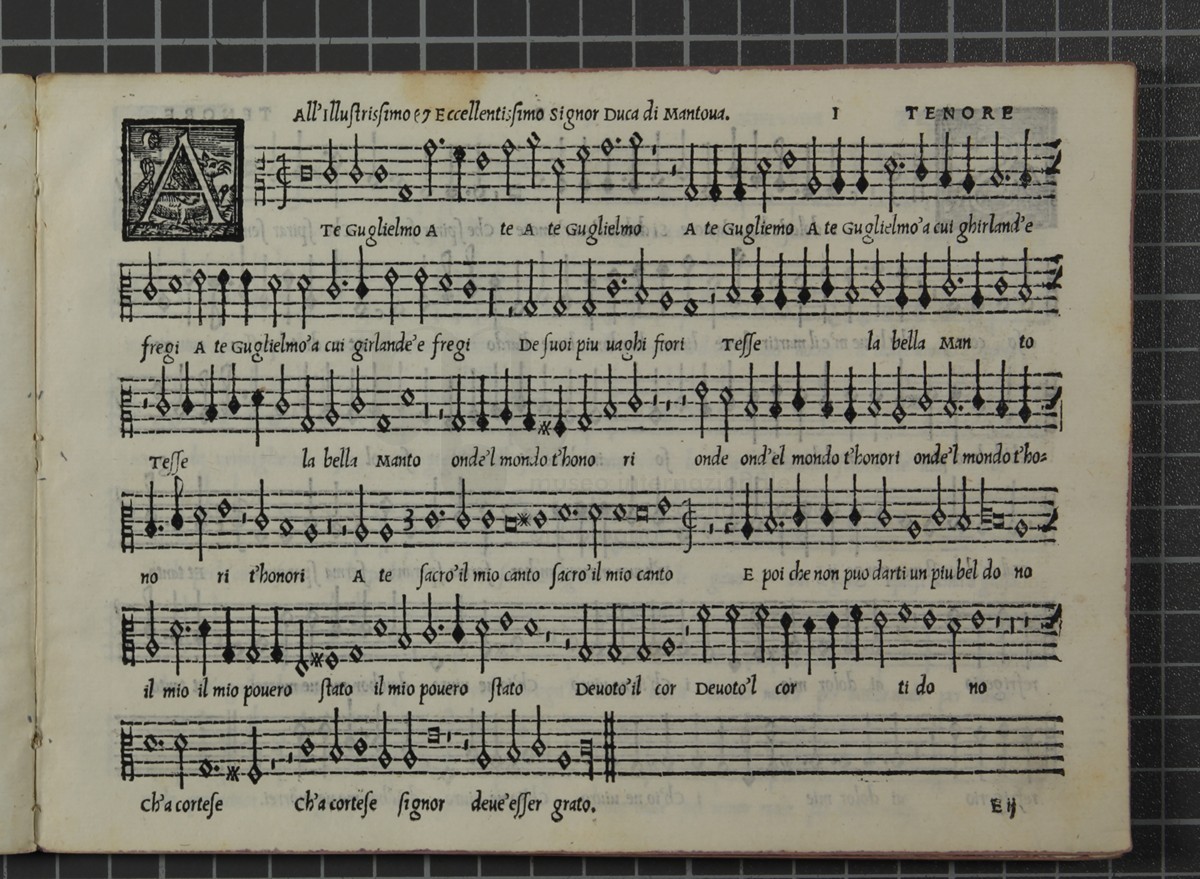 All'Illustrissimo & Eccellentissimo Signor Duca di Mantoua. I TENORE
A Te Guglielmo A te A te Guglielmo A te Gugliemo A te Guglielmo'a cui ghirland'e
fregi A te Guglielmo'a cui girlande'e fregi De suoi piu uaghi fiori Tesse la bella Man to
Tesse la bella Manto onde'l mondo t'hono ri onde ond'el mondo t'honori onde'l mondo t'ho=
no ri t'honori A te sacro'il mio canto sacro'il mio canto E poi che non puo darti un piu bel do no
il mio il mio pouero stato il mio pouero stato Deuoto'il cor Deuoto'l cor ti do no
Ch'a cortese Ch'a cortese signor deue'esser grato.
E ij